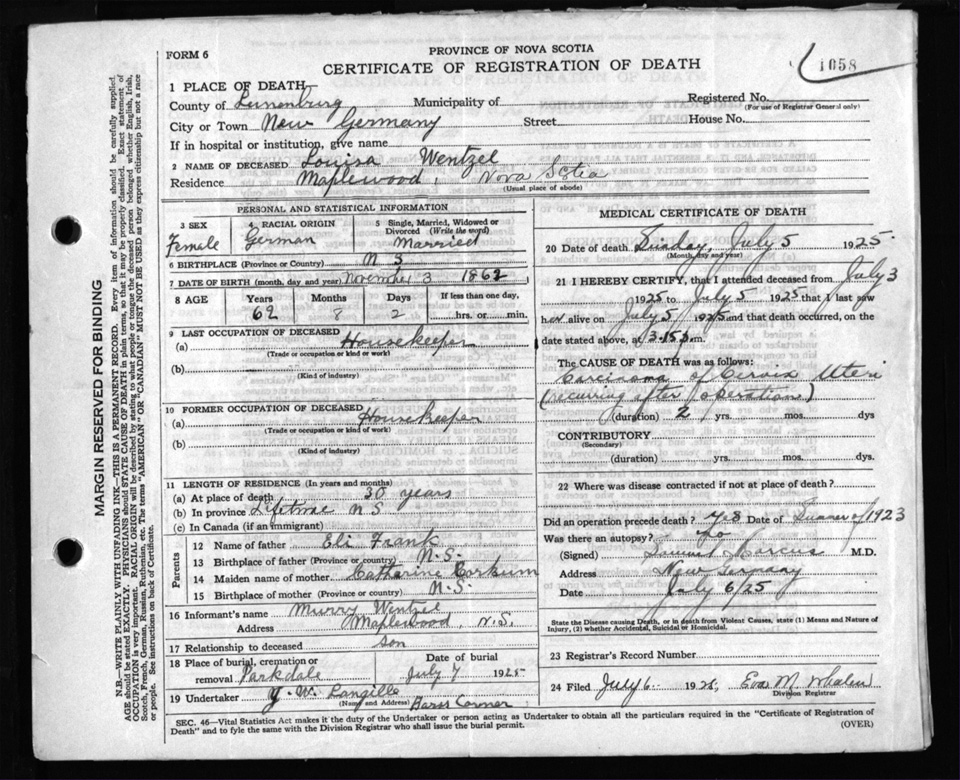 FORM 6
PROVINCE OF NOVA SCOTIA
CERTIFICATE OF REGISTRATION OF DEATH
1058
1 PLACE OF DEATH
County of Lunenburg Municipality of
Registered No.
(For use of Registrar General only)
City or Town New Germany Street
House No.
If in hospital or institution, give name
2 NAME OF DECEASED Louisa Wentzel
Residence Maplewood, Nova Scotia
(Usual place of abode)
PERSONAL AND STATISTICAL INFORMATION
3 SEX
Female
4 RACIAL ORIGIN
German
5 Single, Married, Widowed or
Divorced (Write the word)
Married
6 BIRTHPLACE (Province or Country) N S
7 DATE OF BIRTH (month, day and year) November 3 1862
8 AGE Years Months Days If less than one day,
62 8 2 hrs. or min.
9 LAST OCCUPATION OF DECEASED
(a) Housekeeper
(Trade or occupation or kind or work)
(b)
(Kind of industry)
10 FORMER OCCUPATION OF DECEASED
(a) Housekeeper
(Trade or occupation or kind or work)
(b)
(Kind of industry)
11 LENGTH OF RESIDENCE (In years and months)
(a) At place of death 30 years
(b) In province Lifetime N S
(c) In Canada (if an immigrant)
Parents
12 Name of father Eli Frank
13 Birthplace of father (Province or Country) N.S.
14 Maiden name of mother Catharine Corkum
15 Birthplace of mother (Province or Country) N.S.
16 Informant's name Murry Wentzel
Address Maplewood, N.S.
17 Relationship to deceased son
18 Place of burial, cremation or
removal Parkdale
Date of burial
July 7 1925
19 Undertaker J. W. Langille
(Name and Address) Barss Corner
MEDICAL CERTIFICATE OF DEATH
20 Date of death Sunday, July 5 1925.
(Month, day and year)
21 I HEREBY CERTIFY, that I attended deceased from July 3
1925 to July 5 1925 that I last saw
her alive on July 5 1925 and that death occurred, on the
date stated above, at 3.15 m.
The CAUSE OF DEATH was as follows:
Carcinoma of Cervix Uteri
(recurring after operation)
(duration) 2 yrs. mos. dys
CONTRIBUTORY
(Secondary)
(duration) yrs. mos. dys.
22 Where was disease contracted if not at place of death?
Did an operation precede death? yes Date of Summer of 1923
Was there an autopsy? No
(Signed) Samuel Marcus M.D.
Address New Germany
Date July 6/25
State the Disease causing Death, or in death from Violent Causes, state (1) Means and Nature of
Injury, (2) whether Accidental, Suicidal or Homicidal.
23 Registrar's Record Number
24 Filed July 6 1925, Eva M Whalen
Division Registrar
SEC. 46—Vital Statistics Act makes it the duty of the Undertaker or person acting as Undertaker to obtain all the particulars required in the "Certificate of Registration of
Death" and to fyle the same with the Division Registrar who shall issue the burial permit.
(OVER)
MARGIN RESERVED FOR BINDING
N.B.—WRITE PLAINLY WITH UNFADING INK—THIS IS A PERMANENT RECORD. Every item of information should be carefully supplied.
AGE should be stated EXACTLY. PHYSICIANS should STATE CAUSE OF DEATH in plain terms, so that it may be properly classified. Exact statement of
OCCUPATION is very important. RACIAL ORIGIN will be described by stating to what people or tongue the deceased person belonged whether English, Irish,
Scotch, French, German, Russian, Ruthenian, etc. The terms "AMERICAN" OR "CANADIAN" MUST NOT BE USED as they express citizenship but not a race
or people. See instructions on back of Certificate.